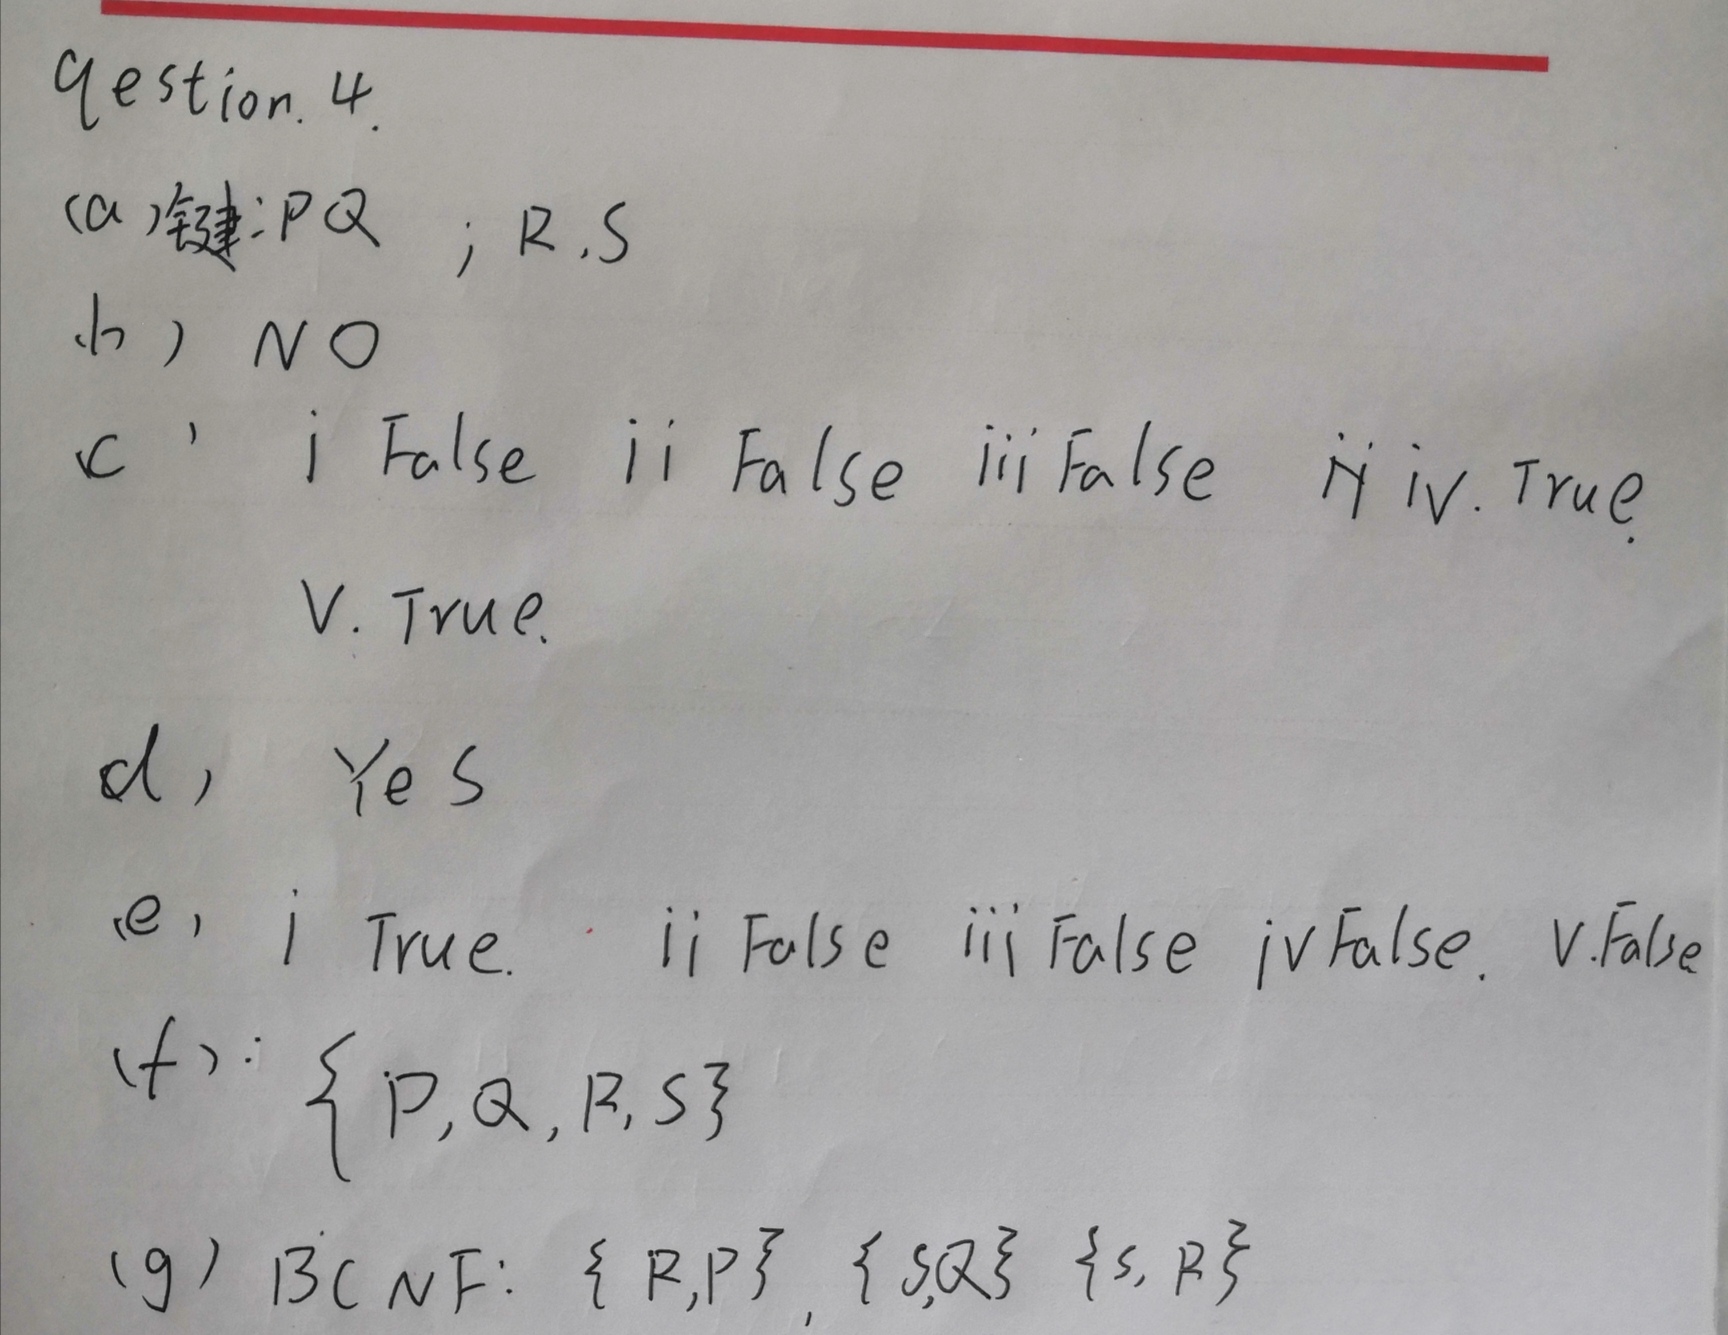 qestion. 4.
(a) 键: PQ ; R.S
b) NO
c) i False ii False iii False iv. True.
V. True.
d) Yes
e) i True. ii False iii False iv False. V. False
(f): {P, Q, R, S}
(g) BCNF: {R,P}, {S,Q} {S, R}